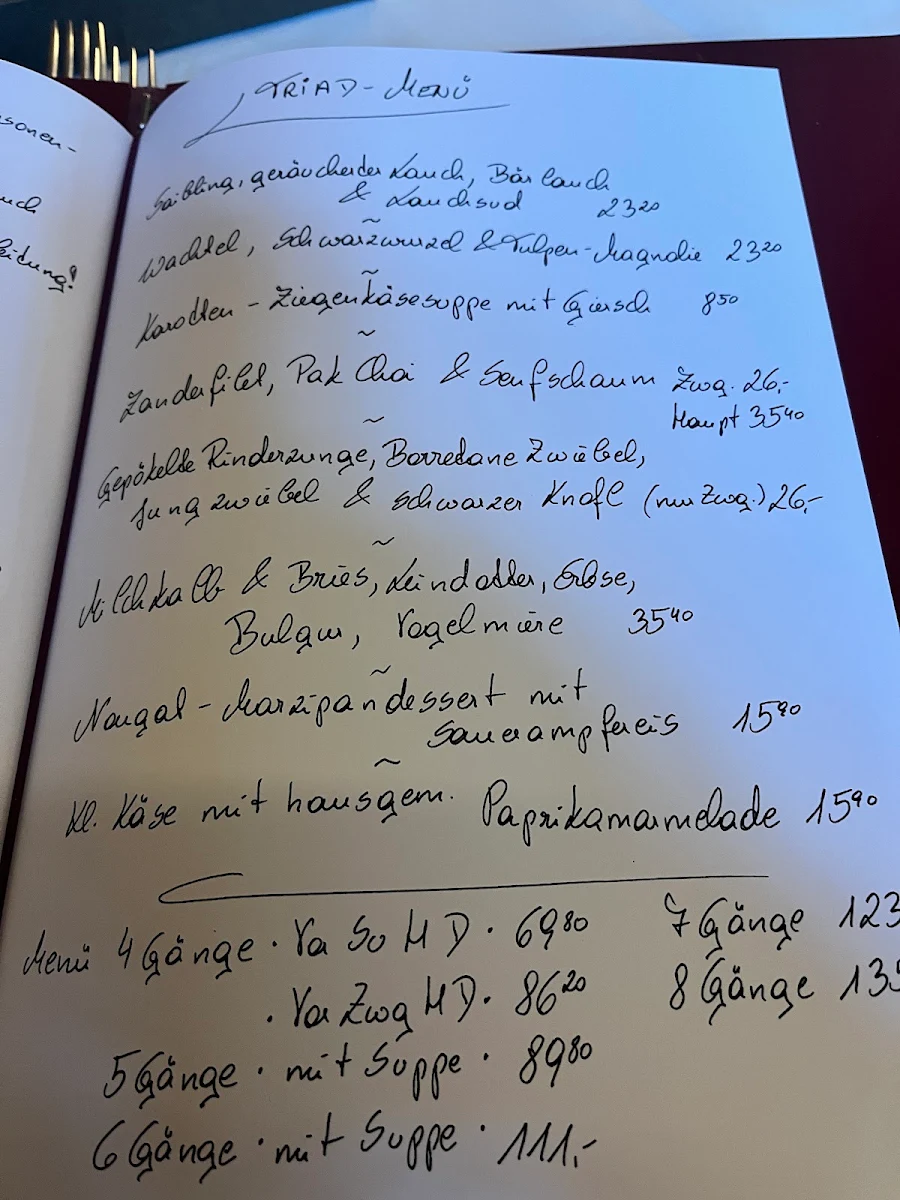 sonen-
uch
eidung!
TRIAD-MENÜ
Saibling, geräucherter Lauch, Bärlauch
& Lauchsud 23²⁰
~
Wachtel, Schwarzwurzel & Tulpen-Magnolie 23²⁰
~
Karotten-Ziegenkäsesuppe mit Giersch 8⁵⁰
~
Zanderfilet, Pak Choi & Senfschaum Zwg. 26,-
Haupt 35⁴⁰
~
Gepökelte Rinderzunge, Borretane Zwiebel,
Jungzwiebel & schwarzer Knofl (nur Zwg.) 26,-
~
Milchkalb & Bries, Leindotter, Erbse,
Bulgur, Vogelmiere 35⁴⁰
~
Nougat-Marzipandessert mit
Sauerampfereis 15⁹⁰
~
Kl. Käse mit hausgem. Paprikamarmelade 15⁹⁰
Menü 4 Gänge · Va So H D · 69⁸⁰ 7 Gänge 123
· Vor Zwg H D · 86²⁰ 8 Gänge 135
5 Gänge · mit Suppe · 89⁸⁰
6 Gänge · mit Suppe · 111,-